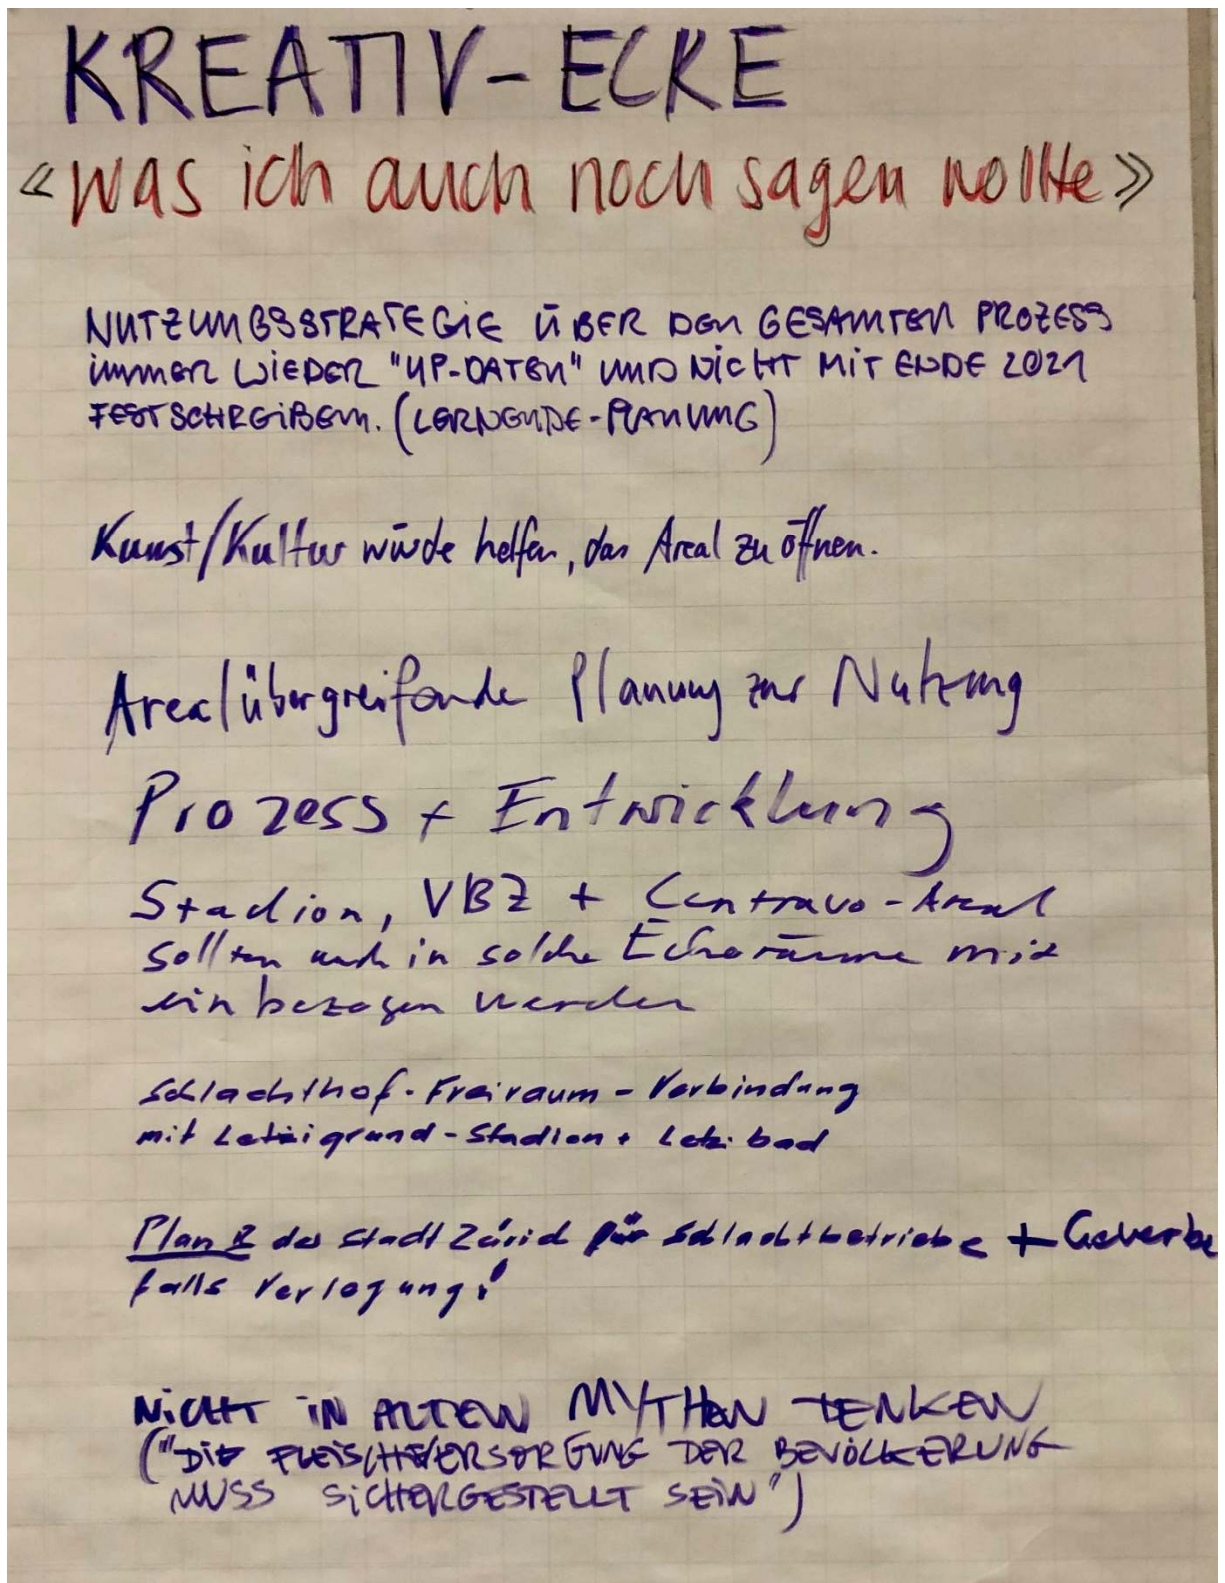 KREATIV-ECKE
«was ich auch noch sagen wollte»
NUTZUNGSSTRATEGIE ÜBER DEN GESAMTEN PROZESS
IMMER WIEDER "UP-DATEN" UND NICHT MIT ENDE 2021
FESTSCHREIBEN. (LERNENDE-PLANUNG)
Kunst/Kultur würde helfen, das Areal zu öffnen.
Arealübergreifende Planung zur Nutzung
Prozess + Entwicklung
Stadion, VBZ + Centravo-Areal
sollten auch in solche Echoräume mit
einbezogen werden
Schlachthof-Freiraum-Verbindung
mit Letzigrund-Stadion + Letzibad
Plan B der Stadt Zürich für Schlachtbetriebe + Gewerbe
falls Verlegung!
NICHT IN ALTEN MYTHEN DENKEN
("DIE FLEISCHVERSORGUNG DER BEVÖLKERUNG
MUSS SICHERGESTELLT SEIN")